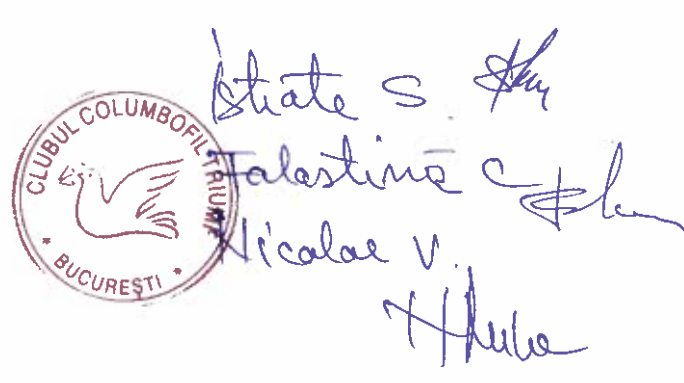 CLUBUL COLUMBOFIL TRIUMF
* BUCUREȘTI *
Istrate S.
Falastină C
Nicolae V.